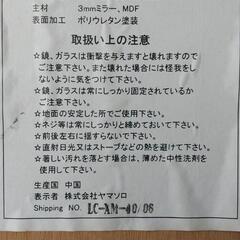 主材　3mmミラー、MDF
表面加工　ポリウレタン塗装
取扱い上の注意
☆鏡、ガラスは衝撃を与えますと壊れますので
ご注意下さい。また壊れた場合には怪我をし
ないようお気をつけ下さい。
☆鏡、ガラスがしっかりと固定されているか
ご注意下さい。
☆地面の安定した所でご使用下さい。
☆ネジ等は常にしっかりと締めてご使用下さい。
☆前後左右に揺すらないで下さい。
☆直射日光又はストーブなどの熱を避けて下さい。
☆著しい汚れを落とす場合は、薄めた中性洗剤を
使用して下さい。
生産国　中国
表示者　株式会社ヤマソロ
Shipping NO.　LC-XM-00/06